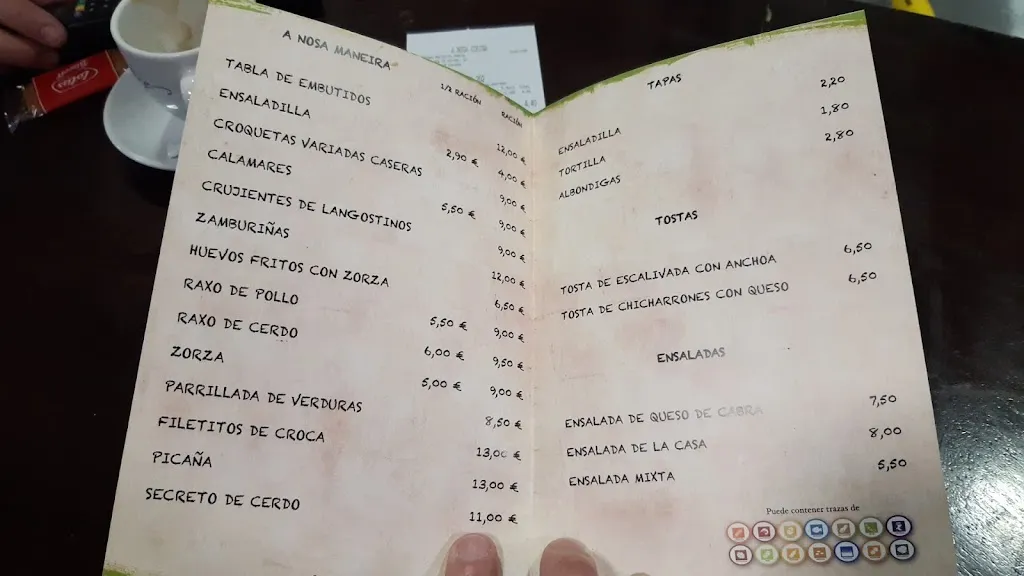 A NOSA MANEIRA
1/2 RACIÓN RACIÓN
TABLA DE EMBUTIDOS 12,00 €
ENSALADILLA 2,90 € 4,00 €
CROQUETAS VARIADAS CASERAS 9,00 €
CALAMARES 5,50 € 9,00 €
CRUJIENTES DE LANGOSTINOS 9,00 €
ZAMBURIÑAS 12,00 €
HUEVOS FRITOS CON ZORZA 6,50 €
RAXO DE POLLO 5,50 € 9,00 €
RAXO DE CERDO 6,00 € 9,50 €
ZORZA 5,00 € 9,00 €
PARRILLADA DE VERDURAS 8,50 €
FILETITOS DE CROCA 13,00 €
PICAÑA 13,00 €
SECRETO DE CERDO 11,00 €
TAPAS
ENSALADILLA 2,20
TORTILLA 1,80
ALBONDIGAS 2,80
TOSTAS
TOSTA DE ESCALIVADA CON ANCHOA 6,50
TOSTA DE CHICHARRONES CON QUESO 6,50
ENSALADAS
ENSALADA DE QUESO DE CABRA 7,50
ENSALADA DE LA CASA 8,00
ENSALADA MIXTA 5,50
Puede contener trazas de
Lotus